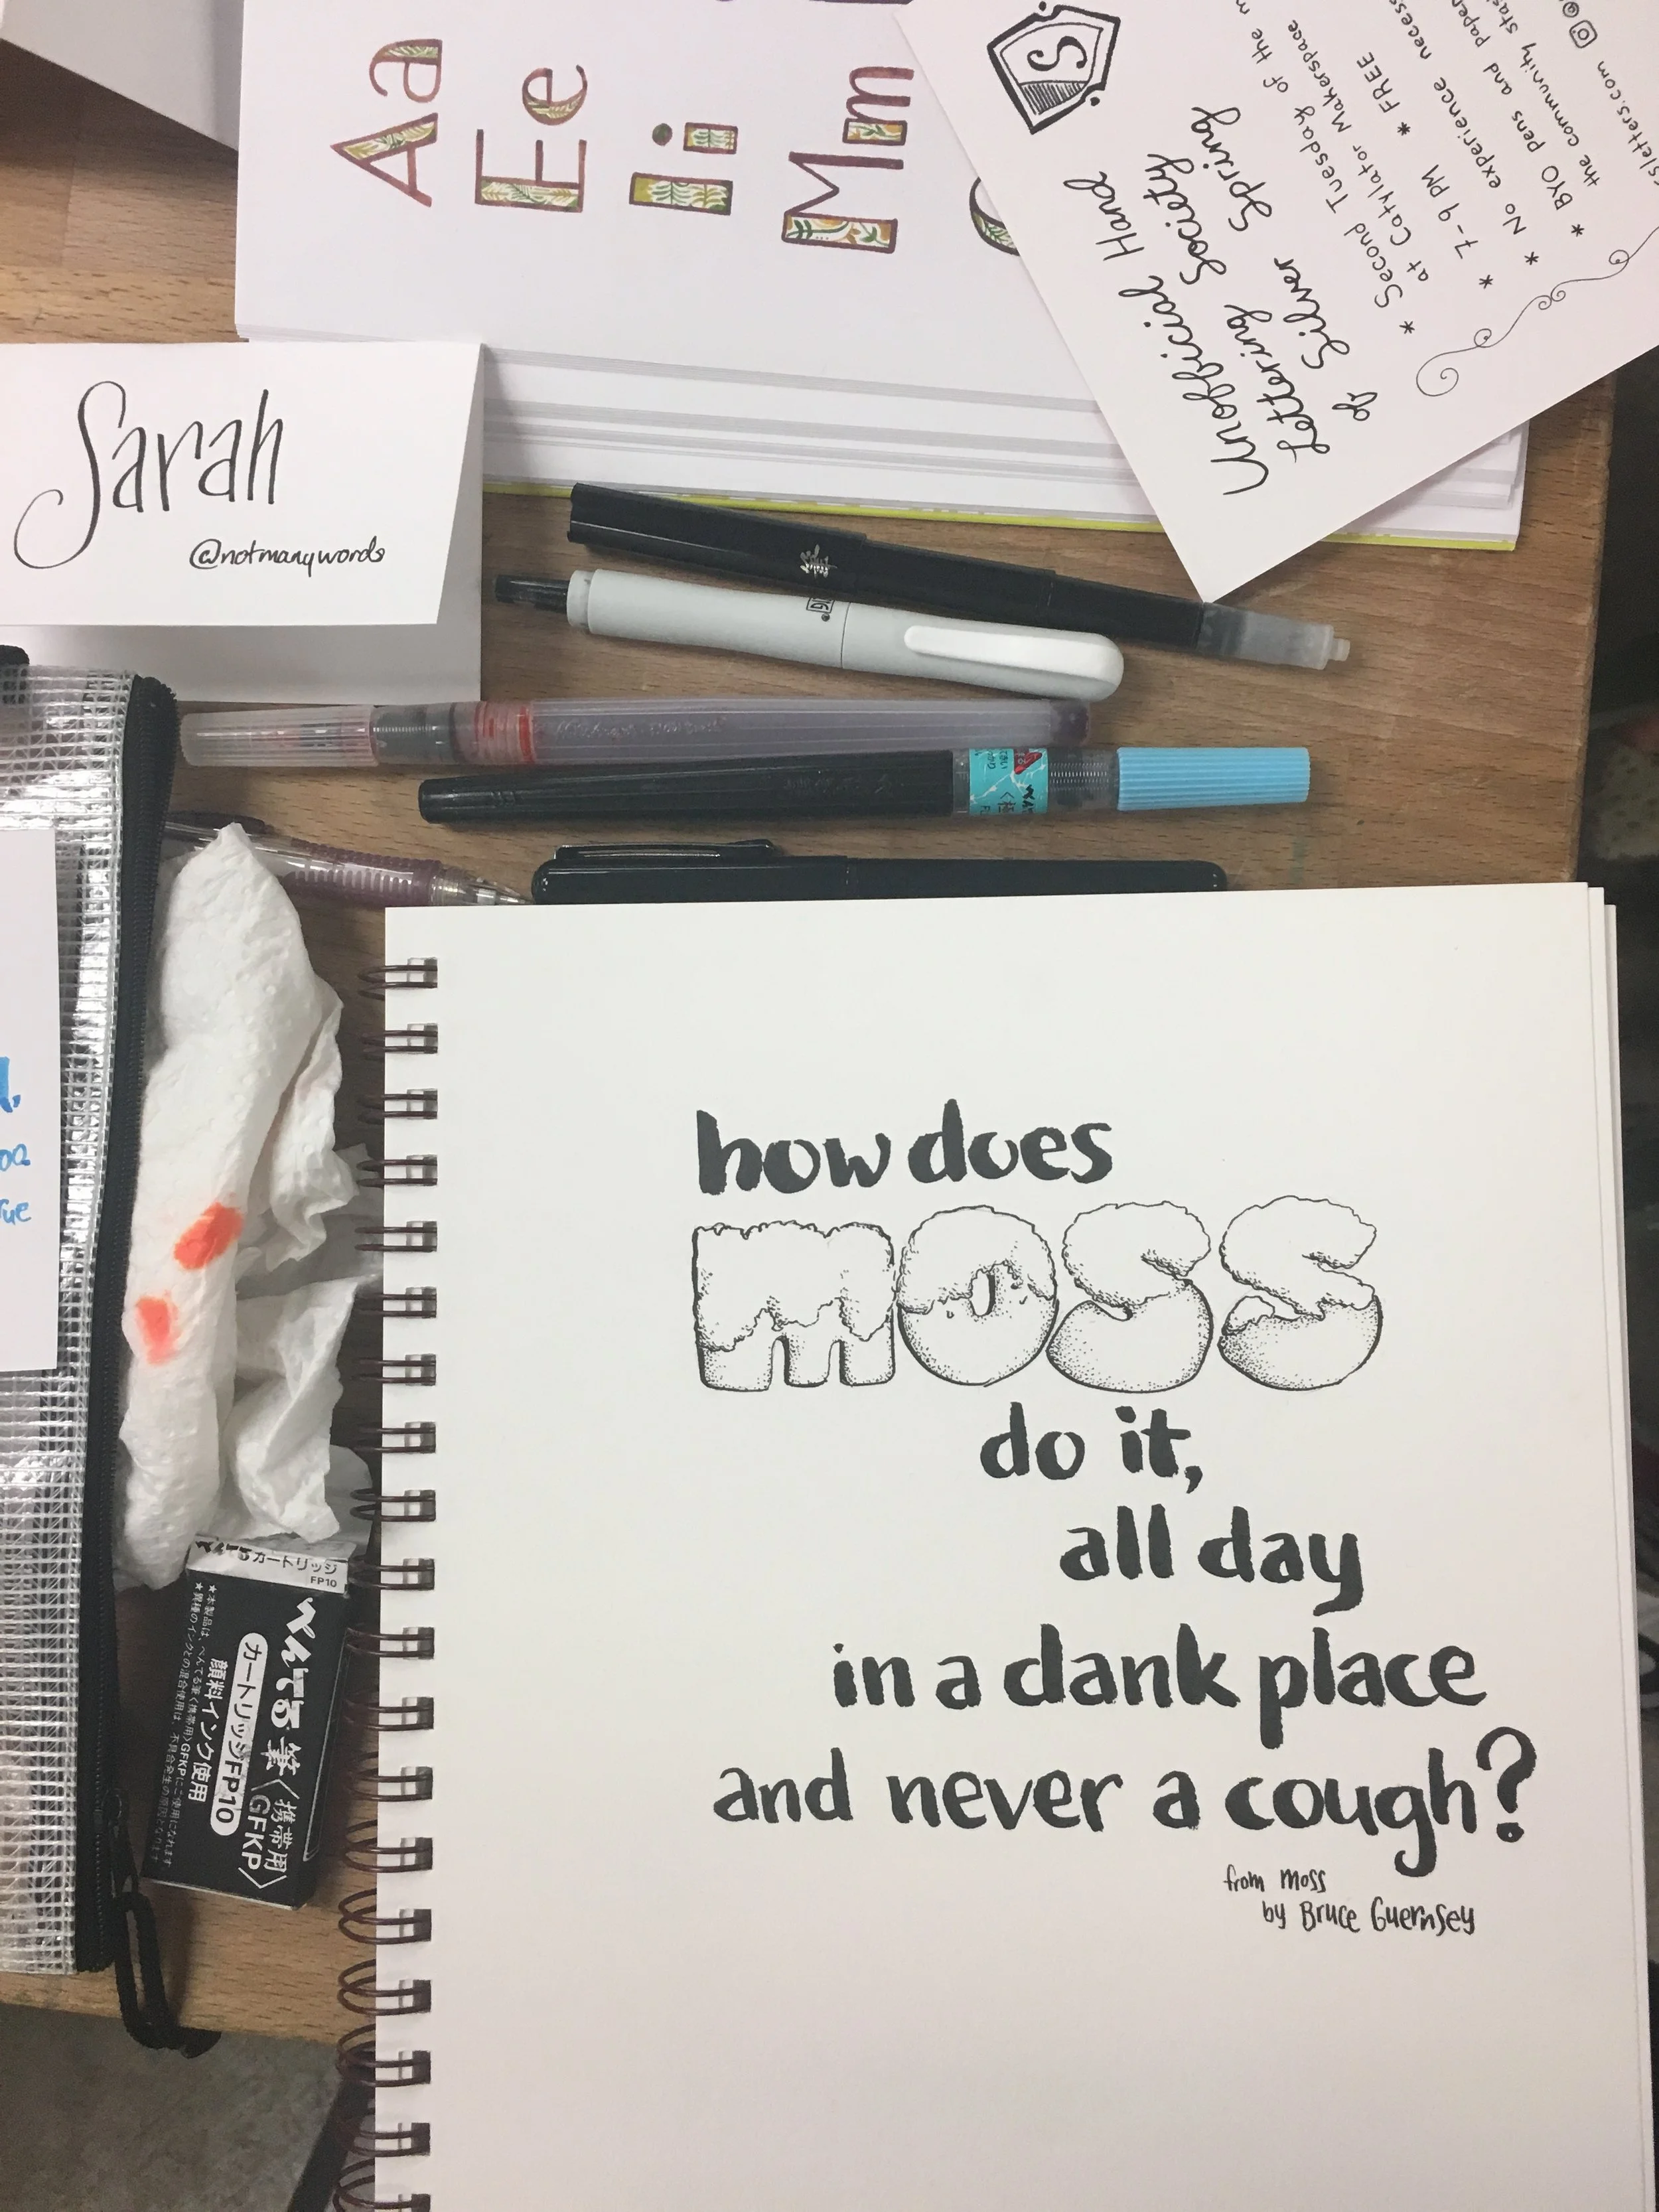 Aa
Ee
Ii
Mm
S
Unofficial Hand
Lettering Society
of Silver Spring
* Second Tuesday of the
at Catylator Makerspace
* 7-9 PM * FREE
* No experience
* BYO pens and
the community
sletters.com
Sarah
@notmanywords
筆
how does
moss
do it,
all day
in a dank place
and never a cough?
from Moss
by Bruce Guernsey
カートリッジ
FP10
ぺんてる筆〈携帯用〉
〈GFKP〉
カートリッジFP10
顔料インク使用